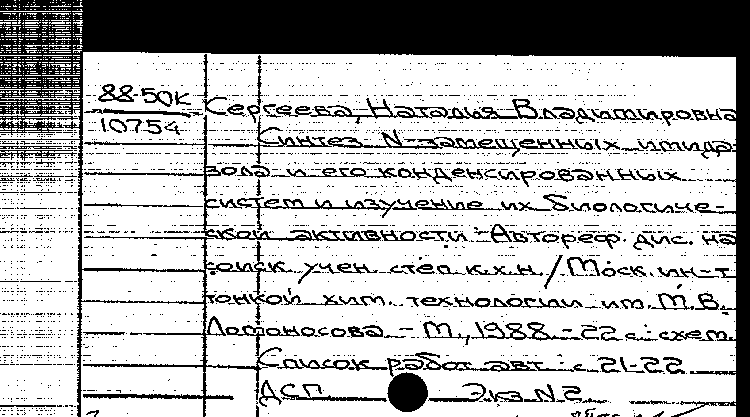 88-50к
10754
Сергеева, Наталья Владимировна
Синтез N-замещенных имида-
зола и его конденсированных
систем и изучение их биологиче-
ской активности: Автореф. дис. на
соиск. учен. степ. к.х.н. / Моск. ин-т
тонкой хим. технологии им. М.В.
Ломоносова. - М., 1988. - 22 с.: схем.
Список работ авт.: с. 21-22
ДСП Экз. N 2